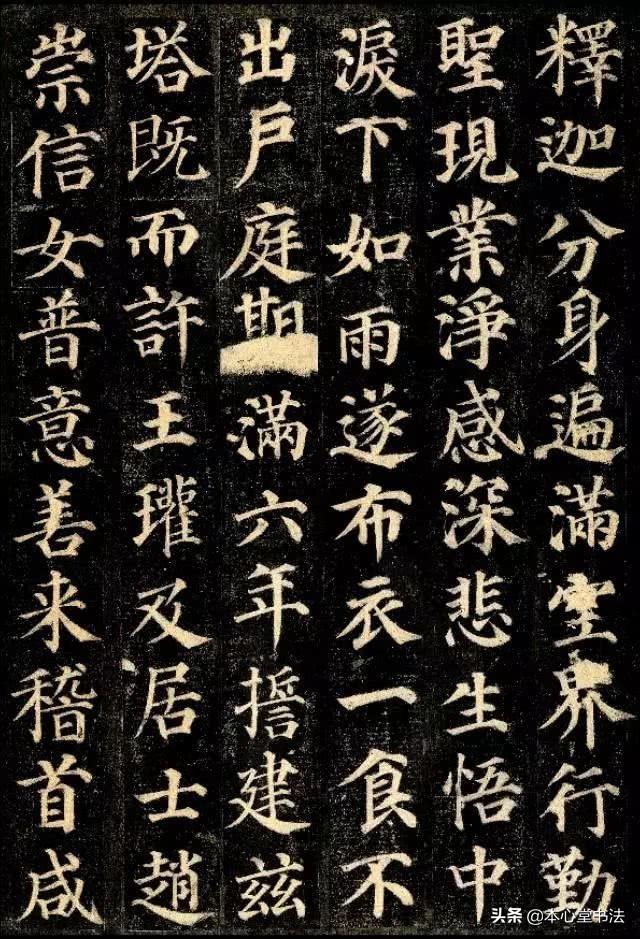 釋迦分身遍滿空界行勤
聖現業淨感深悲生悟中
淚下如雨遂布衣一食不
出戶庭期滿六年誓建茲
塔既而許王瓘及居士趙
崇信女普意善来稽首咸
头条 @本心堂书法